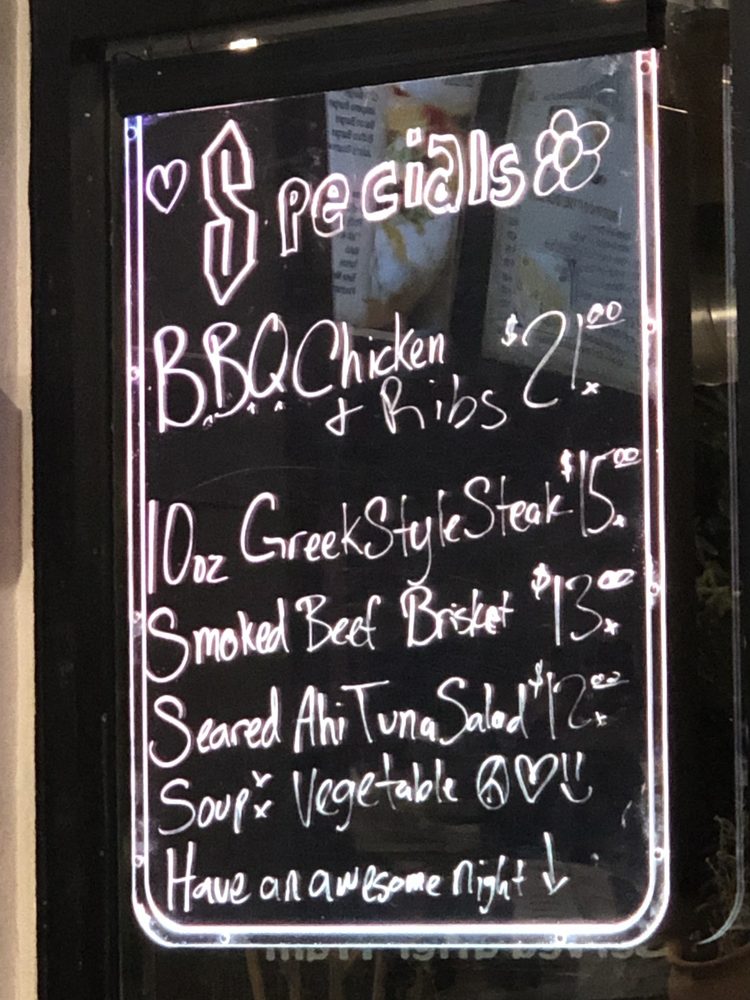 Specials
BBQ Chicken $21.00
& Ribs
10oz Greek Style Steak $15.00
Smoked Beef Brisket $13.00
Seared Ahi Tuna Salad $12.00
Soup: Vegetable
Have an awesome night